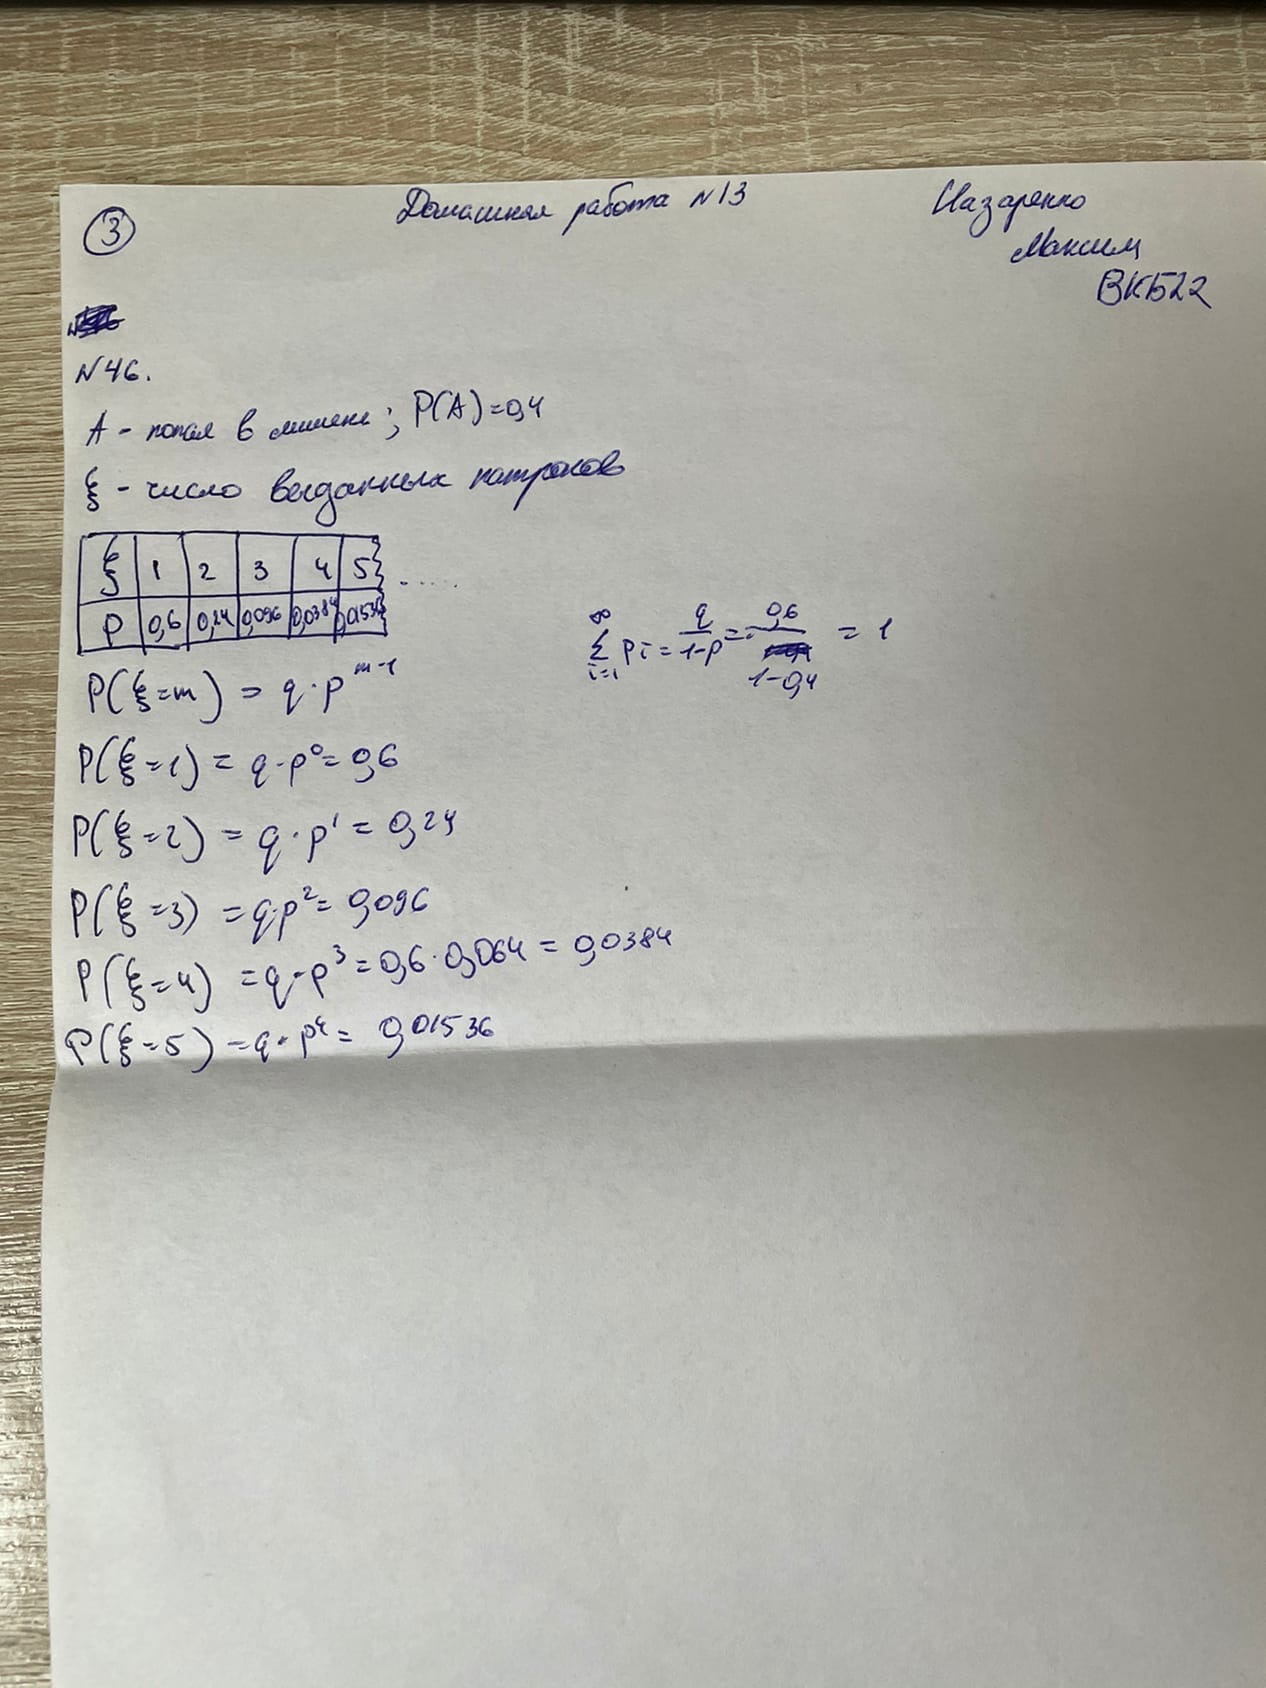 ③
Домашняя работа №13
Назаренко
Максим
ВКБ22
№46.
A - попал в мишень; P(A)=0,4
ξ - число выданных патронов
ξ 1 2 3 4 5 .....
P 0,6 0,24 0,096 0,0384 0,01536
∞ ∑ i=1 pi = q/(1-p) = 0,6/(1-0,4) = 1
P(ξ=m) = q·p^(m-1)
P(ξ=1) = q·p⁰ = 0,6
P(ξ=2) = q·p¹ = 0,24
P(ξ=3) = q·p² = 0,096
P(ξ=4) = q·p³ = 0,6·0,064 = 0,0384
P(ξ=5) = q·p⁴ = 0,01536